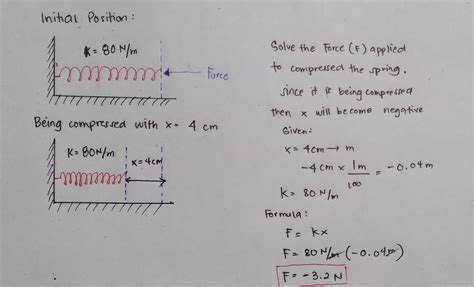 Initial Position:
K = 80 N/m
Force
Being compressed with x = 4 cm
K = 80N/m
x = 4cm
Solve the Force (F) applied
to compressed the spring.
since it is being compressed
then x will become negative
Given:
x = 4cm → m
-4cm x 1m/100 = -0.04m
K = 80 N/m
Formula:
F = kx
F = 80 N/m (-0.04m)
F = -3.2 N